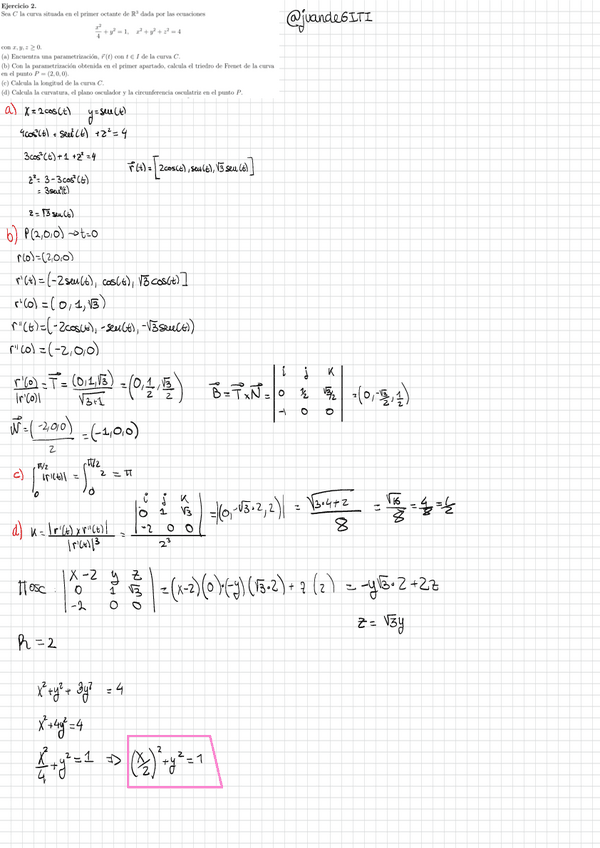 Ejercicio 2.
Sea C la curva situada en el primer octante de ℝ³ dada por las ecuaciones
x²/4 + y² = 1, x² + y² + z² = 4
con x, y, z ≥ 0.
(a) Encuentra una parametrización, r⃗(t) con t ∈ I de la curva C.
(b) Con la parametrización obtenida en el primer apartado, calcula el triedro de Frenet de la curva
en el punto P = (2, 0, 0).
(c) Calcula la longitud de la curva C.
(d) Calcula la curvatura, el plano osculador y la circunferencia osculatriz en el punto P.
@juandeGITI
a) x = 2cos(t) y = sen(t)
4cos²(t) + sen²(t) + z² = 4
3cos²(t) + 1 + z² = 4
z² = 3 - 3cos²(t)
= 3sen²(t)
z = √3 sen(t)
r⃗(t) = [2cos(t), sen(t), √3 sen(t)]
b) P(2,0,0) → t=0
r(0) = (2,0,0)
r'(t) = (-2sen(t), cos(t), √3 cos(t)]
r'(0) = (0, 1, √3)
r''(t) = (-2cos(t), -sen(t), -√3 sen(t))
r''(0) = (-2, 0, 0)
r'(0)/|r'(0)| = T⃗ = (0,1,√3)/√3+1 = (0, 1/2, √3/2) B⃗ = T⃗ x N⃗ = | i j k | 0 1/2 √3/2 | -1 0 0 | = (0, -√3/2, 1/2)
N⃗ = (-2,0,0)/2 = (-1,0,0)
c) ∫₀^π/2 |r'(t)| = ∫₀^π/2 2 = π
d) K = |r'(t) x r''(t)|/|r'(t)|³ = | i j k | 0 1 √3 | -2 0 0 |/2³ = |(0, -√3·2, 2)| = √3·4+2/8 = √16/8 = 4/8 = 1/2
Π osc. | x-2 y z | 0 1 √3 | -2 0 0 | = (x-2)(0)·(-y)(√3·2) + z(2) = -y√3·2 + 2z
z = √3y
R = 2
x² + y² + 3y² = 4
x² + 4y² = 4
x²/4 + y² = 1 ⇒ (x/2)² + y² = 1